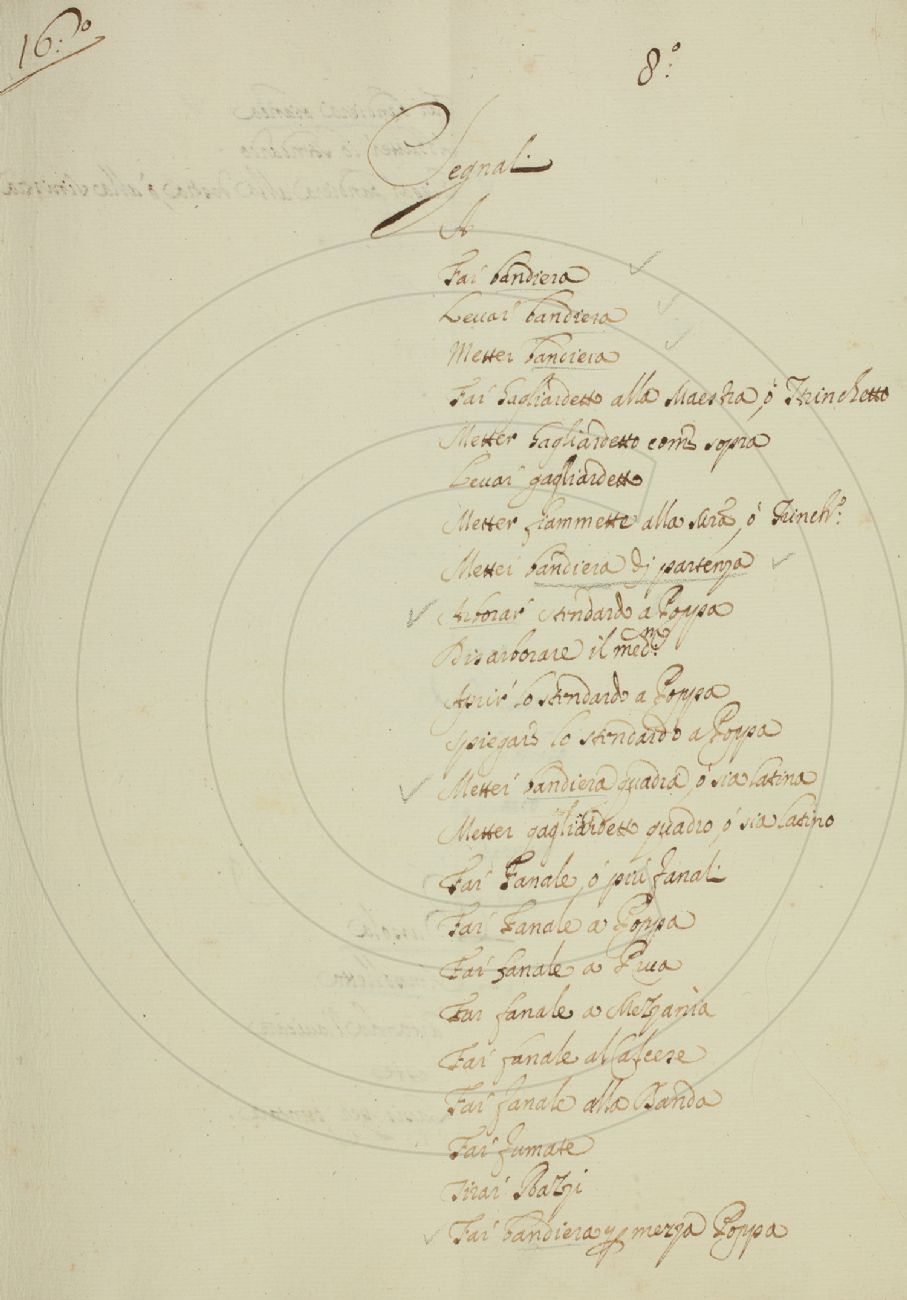 16:o
8:o
Segnali
A
Far bandiera
Levar bandiera
Metter bandiera
Far gagliardetto alla Maestra, ó Trinchetto
Metter gagliardetto come sopra
Levar gagliardetto
Metter fiammette alla Mra, ó Trinch:o
Metter bandiera di partenza
Arborar stendardo a Poppa
Disarborare il med:mo
Aprir lo stendardo a Poppa
Spiegar lo stendardo a Poppa
Metter bandiera quadra, ó sia latina
Metter gagliardetto quadro, ó sia latino
Far Fanale, ó piú fanali
Far Fanale a Poppa
Far fanale a Prua
Far fanale a Mezania
Far fanale al Calcese
Far fanale alla Banda
Far fumate
Tirar Razzi
Far bandiera mezza Poppa